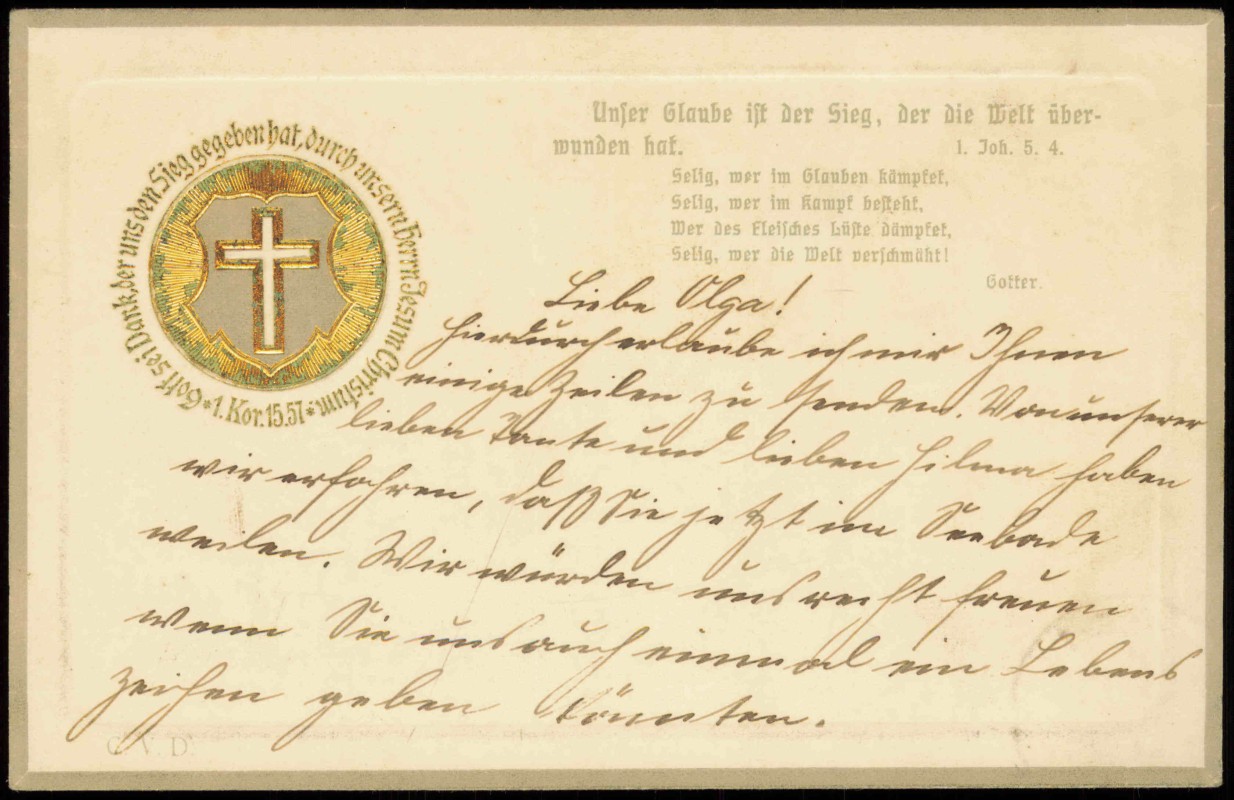 Gott sei Dank, der uns den Sieg gegeben hat, durch unsern Herrn Jesum Christum * 1. Kor. 15. 57 *
Unser Glaube ist der Sieg, der die Welt über-
wunden hat. 1. Joh. 5. 4.
Selig, wer im Glauben kämpfet,
Selig, wer im Kampf besteht,
Wer des Fleisches Lüste dämpfet,
Selig, wer die Welt verschmäht!
Gotter.
Liebe Olga!
Hierdurch erlaube ich mir Ihnen
einige Zeilen zu senden. Von unserer
lieben Tante und lieben Hilma haben
wir erfahren, daß Sie jetzt im Seebade
weilen. Wir würden uns recht freuen
wenn Sie uns auch einmal ein Lebens
zeichen geben könnten.
C. V. D.